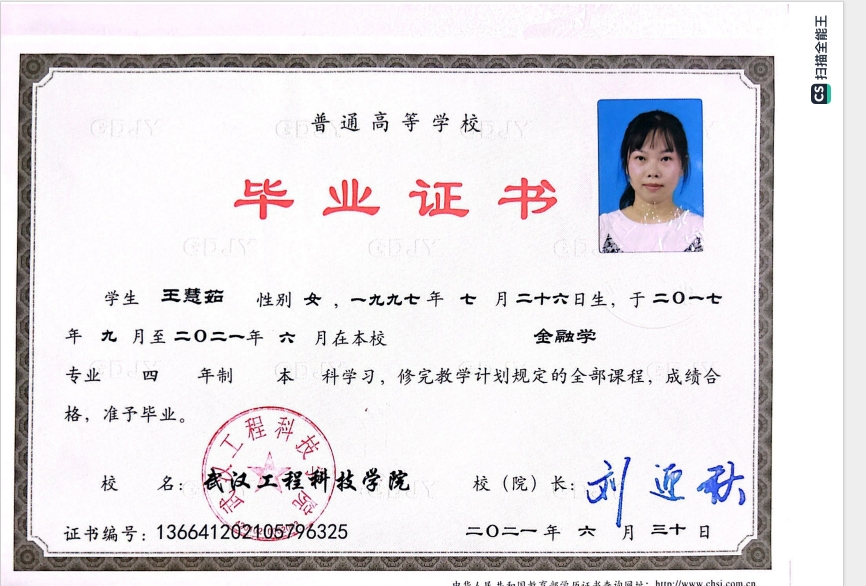 CS 扫描全能王
普通高等学校
毕业证书
学生 王慧茹 性别 女 ，一九九七 年 七 月 二十六日生，于 二〇一七
年 九 月至 二〇二一年 六 月在本校 金融学
专业 四 年制 本 科学习，修完教学计划规定的全部课程，成绩合
格，准予毕业。
武汉工程科技学院
校 名：武汉工程科技学院 校（院）长：刘迎秋
证书编号：136641202105796325 二〇二一年 六 月 三十 日
中华人民共和国教育部学历证书查询网址：http://www.chsi.com.cn